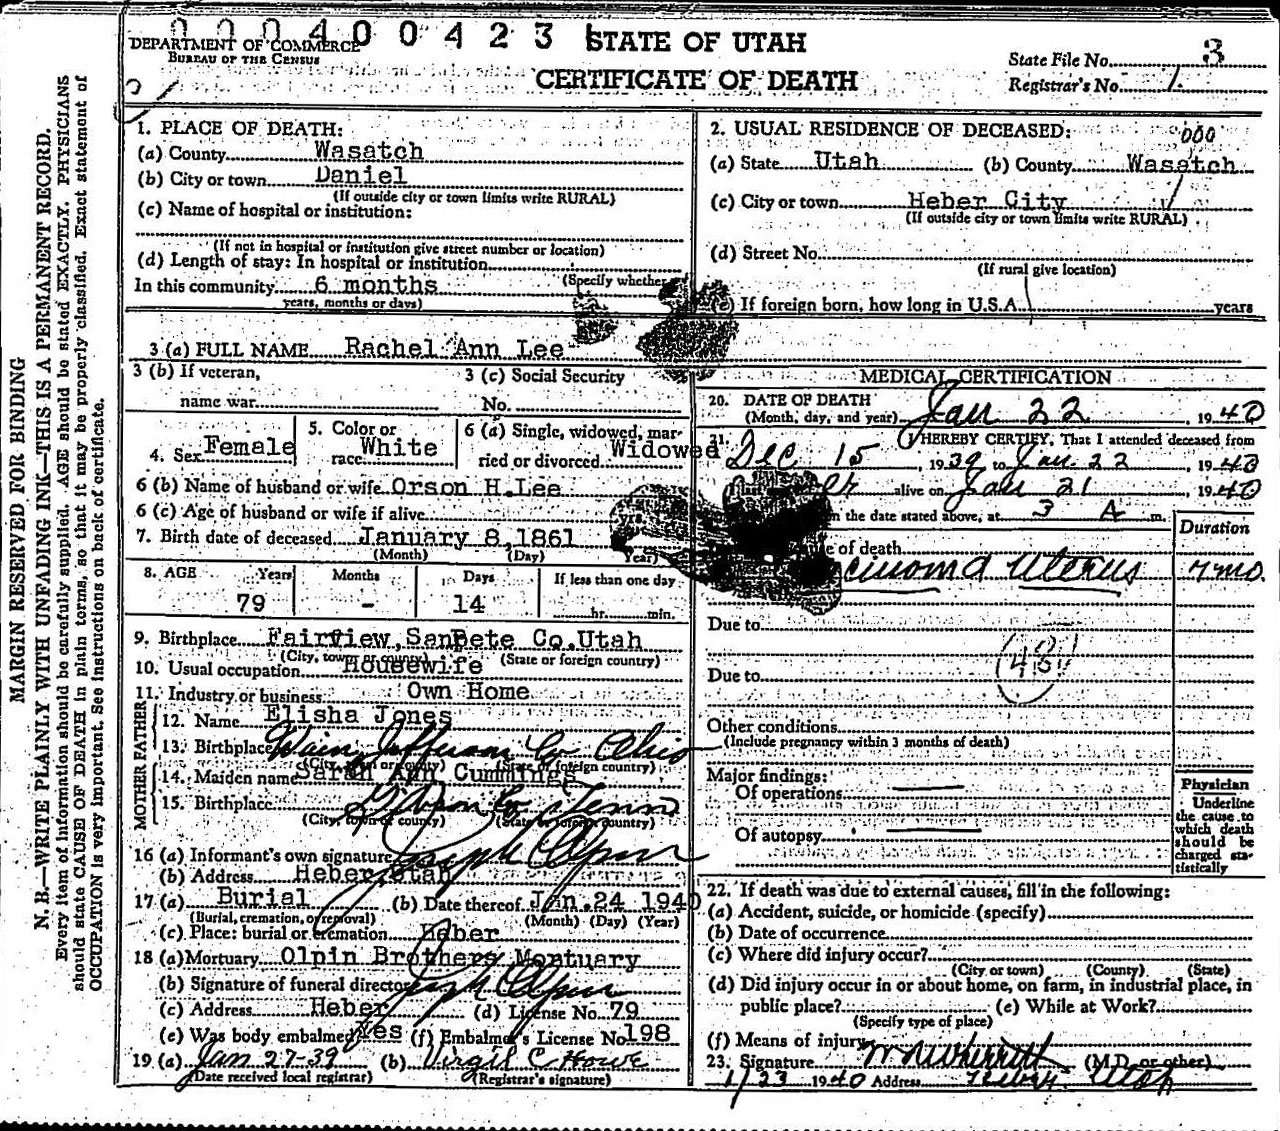 000400423
DEPARTMENT OF COMMERCE
BUREAU OF THE CENSUS
STATE OF UTAH
CERTIFICATE OF DEATH
State File No. 3
Registrar's No. 1.
MARGIN RESERVED FOR BINDING
N. B.—WRITE PLAINLY WITH UNFADING INK—THIS IS A PERMANENT RECORD.
Every item of information should be carefully supplied. AGE should be stated EXACTLY. PHYSICIANS
should state CAUSE OF DEATH in plain terms, so that it may be properly classified. Exact statement of
OCCUPATION is very important. See instructions on back of certificate.
1. PLACE OF DEATH:
(a) County Wasatch
(b) City or town Daniel
(If outside city or town limits write RURAL)
(c) Name of hospital or institution:
(If not in hospital or institution give street number or location)
(d) Length of stay: In hospital or institution
(Specify whether
In this community 6 months
years, months or days)
2. USUAL RESIDENCE OF DECEASED: 000
(a) State Utah (b) County Wasatch
(c) City or town Heber City
(If outside city or town limits write RURAL)
(d) Street No.
(If rural give location)
(e) If foreign born, how long in U.S.A. years
3 (a) FULL NAME Rachel Ann Lee
3 (b) If veteran,
name war
3 (c) Social Security
No.
4. Sex Female
5. Color or
race White
6 (a) Single, widowed, mar-
ried or divorced Widowed
6 (b) Name of husband or wife Orson H.Lee
6 (c) Age of husband or wife if alive
7. Birth date of deceased January 8,1861
(Month) (Day) Year)
8. AGE Years Months Days If less than one day
79 - 14 hr. min.
9. Birthplace Fairview,SanPete Co.Utah
(City, town or county) (State or foreign country)
10. Usual occupation Housewife
11. Industry or business Own Home
FATHER
12. Name Elisha Jones
13. Birthplace Jefferson Co Ohio
(City, town or county) (State or foreign country)
MOTHER
14. Maiden name Sarah Ann Cummings
15. Birthplace Gibson Co Tenn
(City, town or county) (State or foreign country)
16 (a) Informant's own signature Joseph Olpin
(b) Address Heber,Utah
17 (a) Burial (b) Date thereof Jan.24 1940
(Burial, cremation, or removal) (Month) (Day) (Year)
(c) Place: burial or cremation Heber
18 (a) Mortuary Olpin Brothers Mortuary
(b) Signature of funeral director Joseph Olpin
(c) Address Heber (d) License No. 79
(e) Was body embalmed Yes (f) Embalmer's License No 198
19 (a) Jan 27-39 (b) Virgil C Howe
(Date received local registrar) (Registrar's signature)
MEDICAL CERTIFICATION
20. DATE OF DEATH
(Month, day, and year) Jan 22, 1940
21. I HEREBY CERTIFY, That I attended deceased from
Dec 15, 1939 to Jan. 22, 1940
I last er alive on Jan 21, 1940
n the date stated above, at 3 A m.
Duration
e of death
cinoma Uterus 7 mo.
Due to
Due to
Other conditions
(Include pregnancy within 3 months of death)
Major findings:
Of operations
Of autopsy
Physician
Underline
the cause to
which death
should be
charged sta-
tistically
22. If death was due to external causes, fill in the following:
(a) Accident, suicide, or homicide (specify)
(b) Date of occurrence
(c) Where did injury occur?
(City or town) (County) (State)
(d) Did injury occur in or about home, on farm, in industrial place, in
public place? (e) While at Work?
(Specify type of place)
(f) Means of injury
23. Signature (M.D. or other)
1/23 1940 Address Heber, Utah